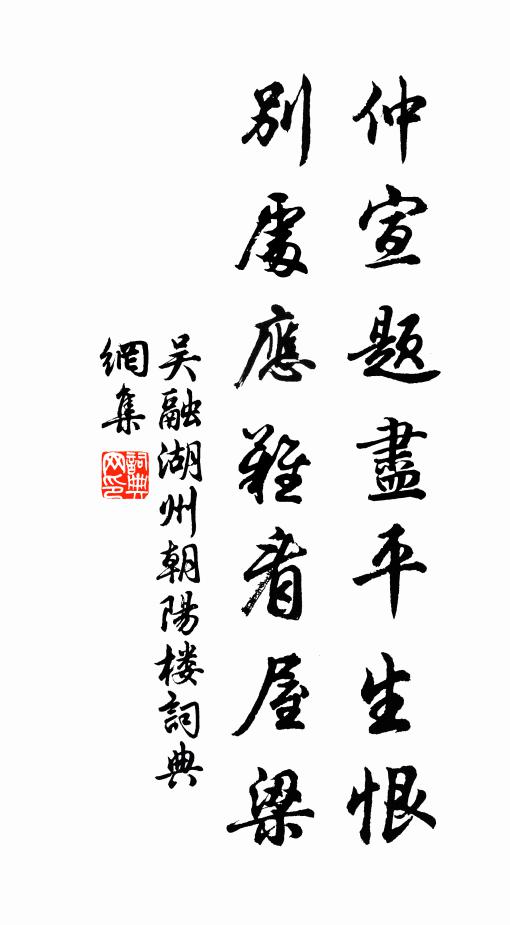 仲宣題盡平生恨
別處應難看屋梁
吴融湖州朝陽楼詞典
網集
詞典
网印